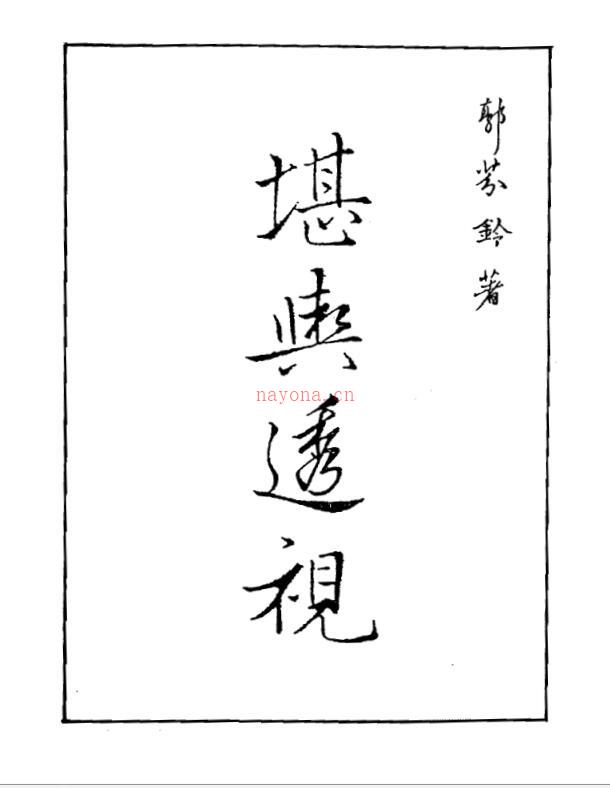 郭芬鈴著
堪輿透視
nayona.cn